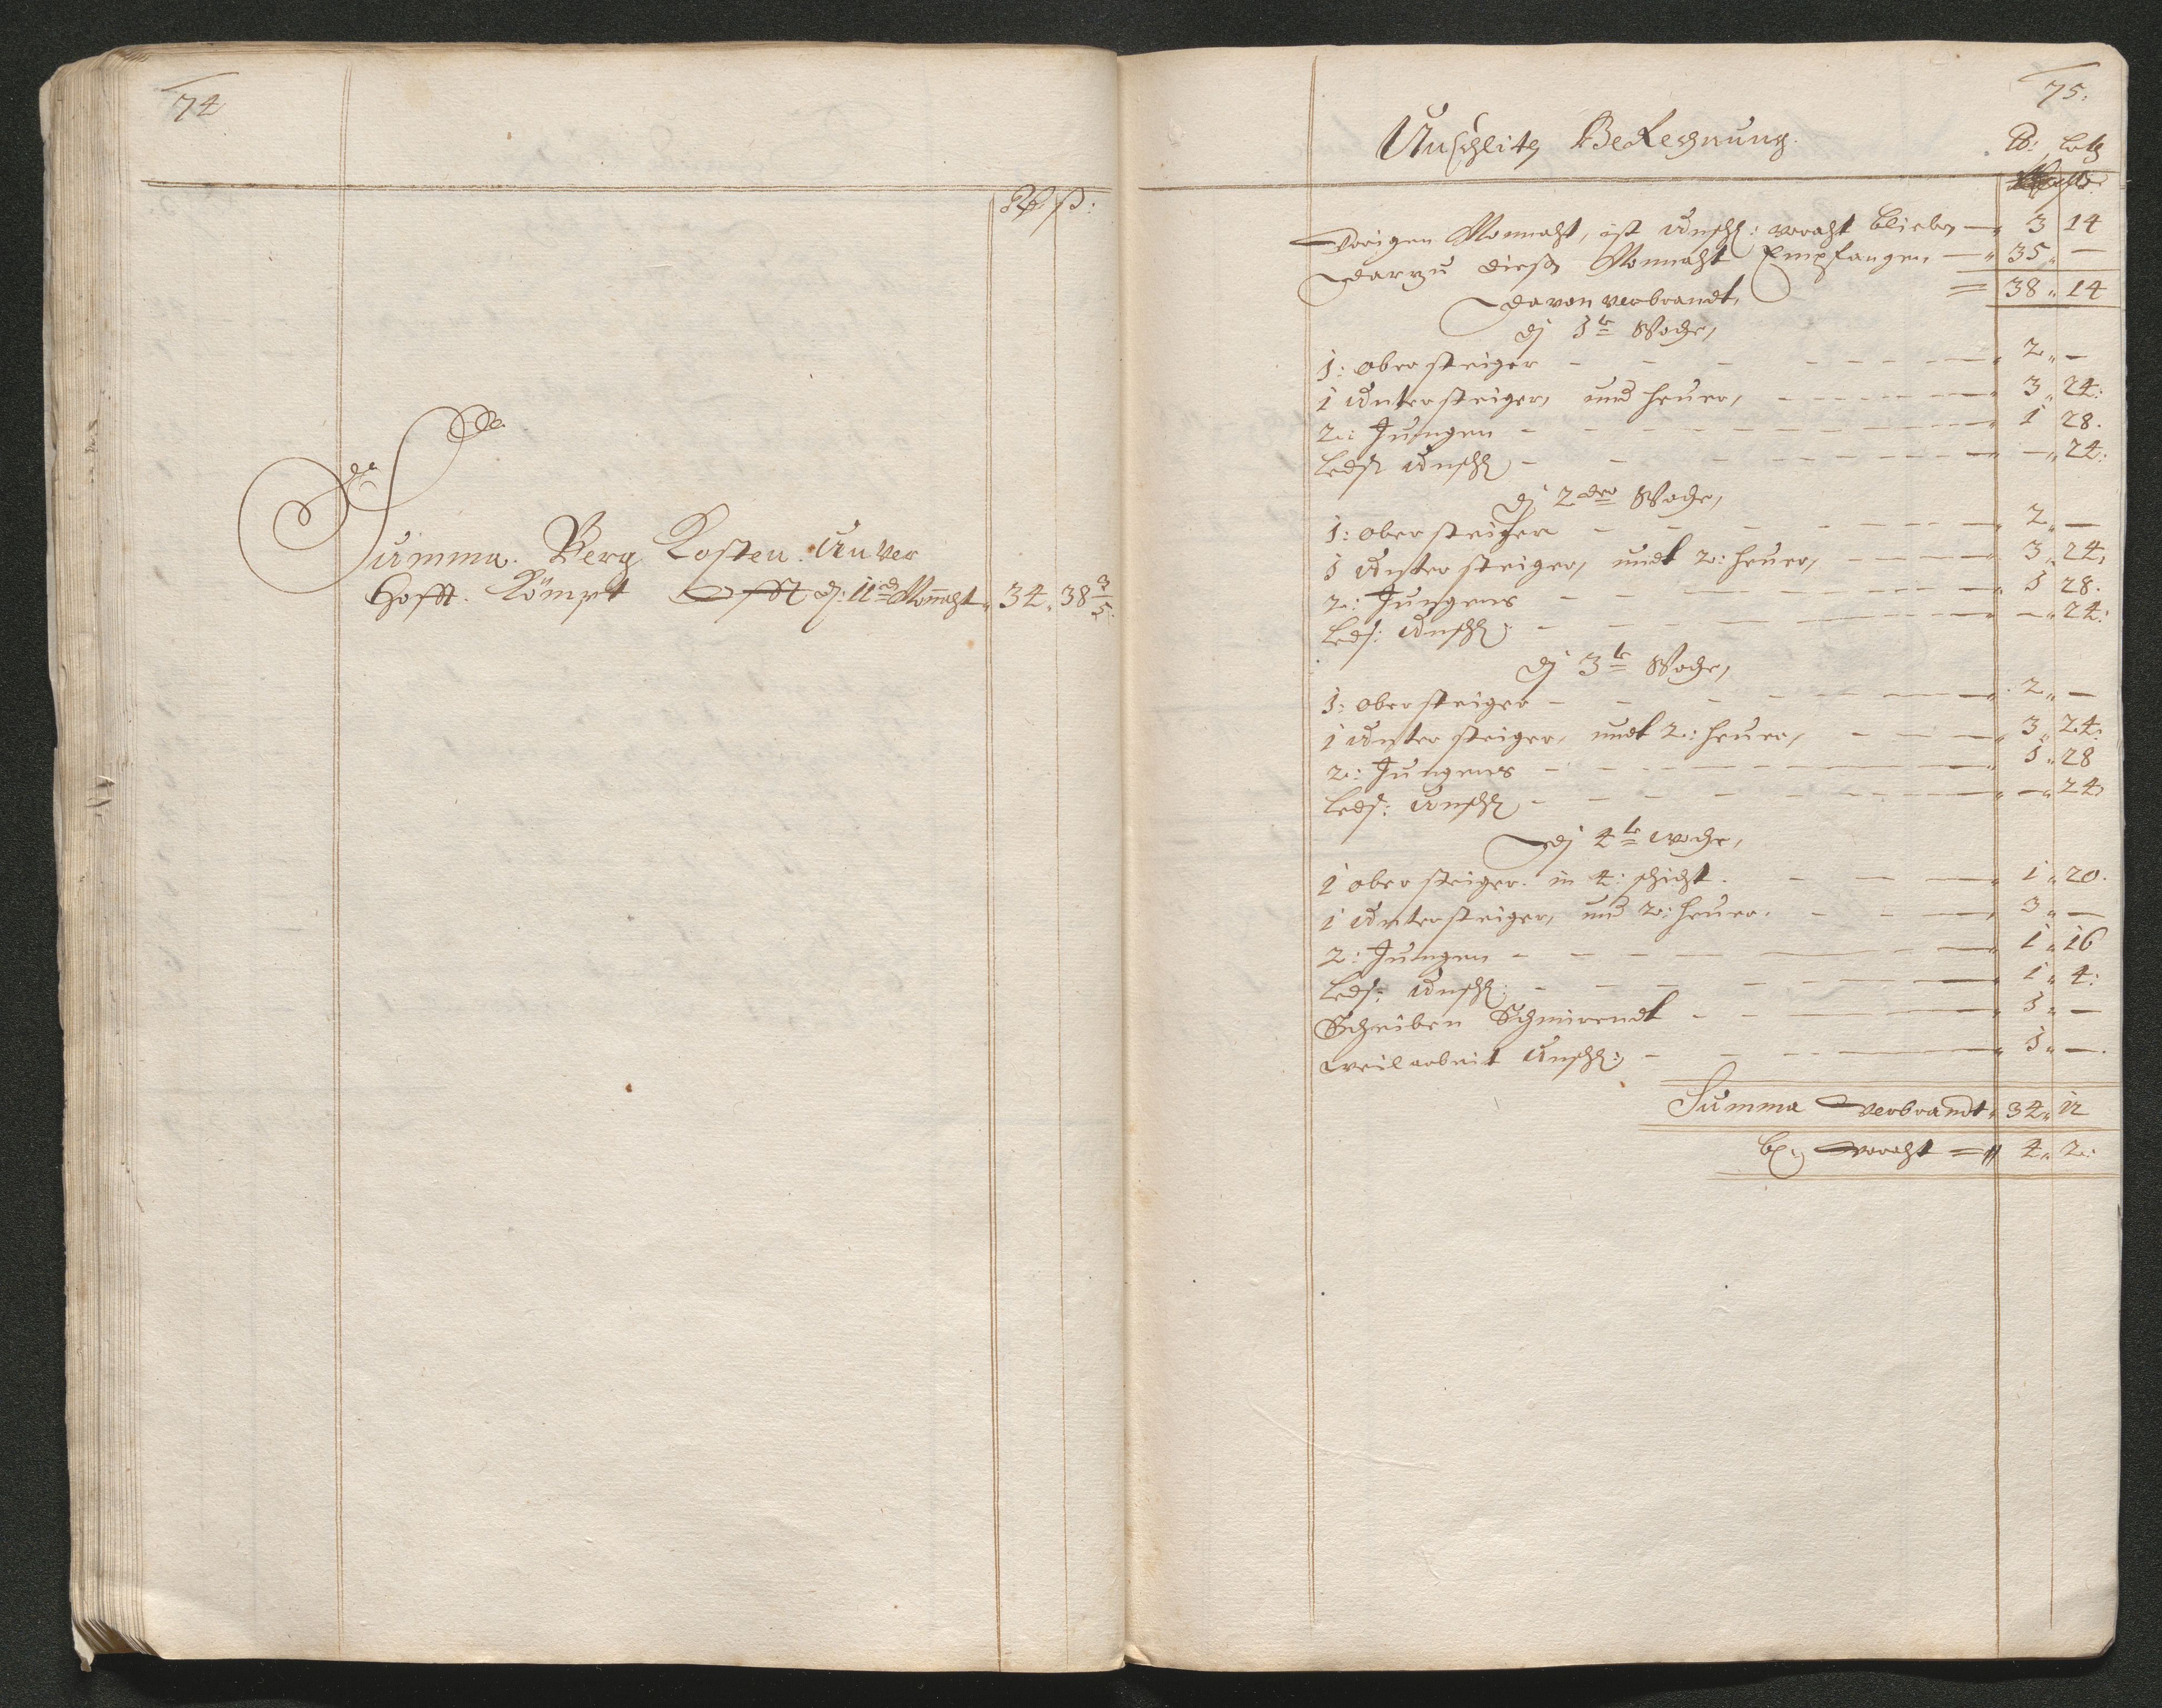 74
Summa. Berg Kosten. Unver
Hofft. Kömpt d: 11 Monnaht „ 34 „ 38 3/5
75:
Unschlitz Berechnung. lb: Loth
Vorigen Monnaht, ist Unschl: voraht blieben — „ 3 14
Darzu diesen Monnaht Empfangen — „ 35 „ —
= 38 „ 14
Davon verbrandt,
Dj 1te Woche,
1: obersteiger — „ 2 „ —
1 Untersteiger, und heuer, — „ 3 „ 24:
2: Jungen — „ 1 28.
Leds: Unschl — „ — „ 24:
Dj 2dro Woche,
1: obersteiger — „ 2 „ —
1 Untersteiger, undt 2: heuer, — „ 3 „ 24,
2: Jungens — „ 1 28.
Leds: Unschl: — „ — „ 24:
Dj 3te Woche,
1: obersteiger — „ 2 „ —
1 Untersteiger, undt 2: heuer, — „ 3 „ 24:
2: Jungens — „ 1 „ 28
Leds: Unschl — „ — „ 24
Dj 4te woche,
1 obersteiger. in 4: schicht. — „ 1 „ 20.
1 Untersteiger, und 2: heuer. — „ 3 „ —
2: Jungen — „ 1 „ 16
Leds: Unschl: — „ 1 „ 4:
Scheiben Schmirendt — „ 1 „ —
weilarbeit Unschl: — „ 1 „ —.
Summa verbrandt „ 34 „ 12
voraht = „ 4 „ 2: